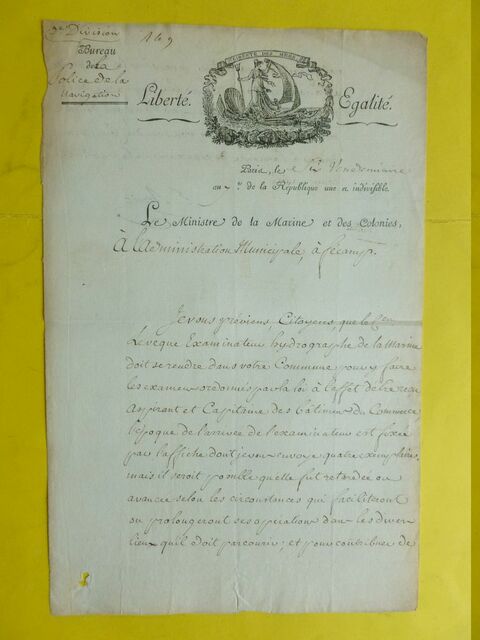 2e Division
Bureau
de la
Police de la
Navigation
LIBERTÉ DES MERS
Liberté.
Egalité.
Paris, le 2 Vendemiaire
an de la République une et indivisible.
Le Ministre de la Marine et des Colonies,
À l'administration Municipale, à fécamp.
Je vous préviens, Citoyens, que le Cen
Léveque Examinateur hydrographe de la Marine
doit se rendre dans votre Commune pour y faire
les examens ordonnés par la loi à l'effet detre reçu
aspirant et Capitaine des bâtimens du Commerce
l'époque de l'arrivée de l'examinateur est fixée
par l'affiche dont je vous envoye quatre exemplaires,
mais il seroit possible quelle fut retardée ou
avancée selon les circonstances qui faciliteront
ou prolongeront ses opérations dans les divers
lieux qu'il doit parcourir; et pour contribuer de